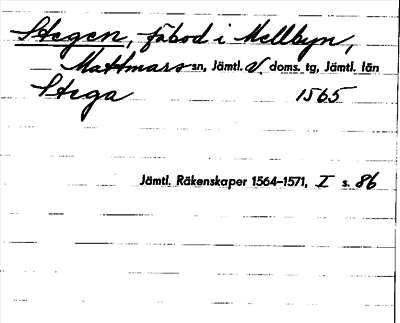 Stegen, fäbod i Mellbyn,
Mattmars sn, Jämtl. V. doms. tg, Jämtl. län
Stega 1565
Jämtl. Räkenskaper 1564–1571, I s. 86